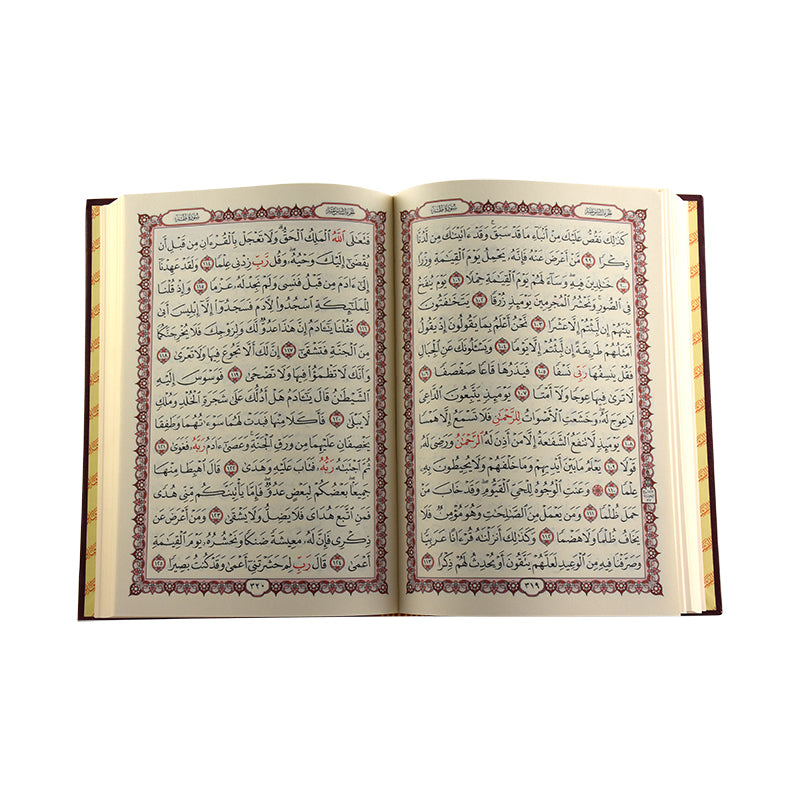 سُورَةُ طه
الجزء السادس عشر
كَذَٰلِكَ نَقُصُّ عَلَيْكَ مِنْ أَنۢبَآءِ مَا قَدْ سَبَقَ ۚ وَقَدْ ءَاتَيْنَٰكَ مِن لَّدُنَّا
ذِكْرًا ٩٩ مَّنْ أَعْرَضَ عَنْهُ فَإِنَّهُۥ يَحْمِلُ يَوْمَ ٱلْقِيَٰمَةِ وِزْرًا
١٠٠ خَٰلِدِينَ فِيهِ ۖ وَسَآءَ لَهُمْ يَوْمَ ٱلْقِيَٰمَةِ حِمْلًا ١٠١ يَوْمَ يُنفَخُ
فِى ٱلصُّورِ ۚ وَنَحْشُرُ ٱلْمُجْرِمِينَ يَوْمَئِذٍ زُرْقًا ١٠٢ يَتَخَٰفَتُونَ
بَيْنَهُمْ إِن لَّبِثْتُمْ إِلَّا عَشْرًا ١٠٣ نَّحْنُ أَعْلَمُ بِمَا يَقُولُونَ إِذْ يَقُولُ
أَمْثَلُهُمْ طَرِيقَةً إِن لَّبِثْتُمْ إِلَّا يَوْمًا ١٠٤ وَيَسْـَٔلُونَكَ عَنِ ٱلْجِبَالِ
فَقُلْ يَنسِفُهَا رَبِّى نَسْفًا ١٠٥ فَيَذَرُهَا قَاعًا صَفْصَفًا ١٠٦
لَّا تَرَىٰ فِيهَا عِوَجًا وَلَآ أَمْتًا ١٠٧ يَوْمَئِذٍ يَتَّبِعُونَ ٱلدَّاعِىَ
لَا عِوَجَ لَهُۥ ۖ وَخَشَعَتِ ٱلْأَصْوَاتُ لِلرَّحْمَٰنِ فَلَا تَسْمَعُ إِلَّا هَمْسًا
١٠٨ يَوْمَئِذٍ لَّا تَنفَعُ ٱلشَّفَٰعَةُ إِلَّا مَنْ أَذِنَ لَهُ ٱلرَّحْمَٰنُ وَرَضِىَ لَهُۥ
قَوْلًا ١٠٩ يَعْلَمُ مَا بَيْنَ أَيْدِيهِمْ وَمَا خَلْفَهُمْ وَلَا يُحِيطُونَ بِهِۦ
عِلْمًا ١١٠ وَعَنَتِ ٱلْوُجُوهُ لِلْحَىِّ ٱلْقَيُّومِ ۖ وَقَدْ خَابَ مَنْ
حَمَلَ ظُلْمًا ١١١ وَمَن يَعْمَلْ مِنَ ٱلصَّٰلِحَٰتِ وَهُوَ مُؤْمِنٌ فَلَا
يَخَافُ ظُلْمًا وَلَا هَضْمًا ١١٢ وَكَذَٰلِكَ أَنزَلْنَٰهُ قُرْءَانًا عَرَبِيًّا
وَصَرَّفْنَا فِيهِ مِنَ ٱلْوَعِيدِ لَعَلَّهُمْ يَتَّقُونَ أَوْ يُحْدِثُ لَهُمْ ذِكْرًا ١١٣
٣١٩
سُورَةُ طه
الجزء السادس عشر
فَتَعَٰلَى ٱللَّهُ ٱلْمَلِكُ ٱلْحَقُّ ۗ وَلَا تَعْجَلْ بِٱلْقُرْءَانِ مِن قَبْلِ أَن
يُقْضَىٰٓ إِلَيْكَ وَحْيُهُۥ ۖ وَقُل رَّبِّ زِدْنِى عِلْمًا ١١٤ وَلَقَدْ عَهِدْنَآ
إِلَىٰٓ ءَادَمَ مِن قَبْلُ فَنَسِىَ وَلَمْ نَجِدْ لَهُۥ عَزْمًا ١١٥ وَإِذْ قُلْنَا
لِلْمَلَٰٓئِكَةِ ٱسْجُدُوا۟ لِـَٔادَمَ فَسَجَدُوٓا۟ إِلَّآ إِبْلِيسَ أَبَىٰ
١١٦ فَقُلْنَا يَٰٓـَٔادَمُ إِنَّ هَٰذَا عَدُوٌّ لَّكَ وَلِزَوْجِكَ فَلَا يُخْرِجَنَّكُمَا
مِنَ ٱلْجَنَّةِ فَتَشْقَىٰٓ ١١٧ إِنَّ لَكَ أَلَّا تَجُوعَ فِيهَا وَلَا تَعْرَىٰ ١١٨
وَأَنَّكَ لَا تَظْمَؤُا۟ فِيهَا وَلَا تَضْحَىٰ ١١٩ فَوَسْوَسَ إِلَيْهِ
ٱلشَّيْطَٰنُ قَالَ يَٰٓـَٔادَمُ هَلْ أَدُلُّكَ عَلَىٰ شَجَرَةِ ٱلْخُلْدِ وَمُلْكٍ
لَّا يَبْلَىٰ ١٢٠ فَأَكَلَا مِنْهَا فَبَدَتْ لَهُمَا سَوْءَٰتُهُمَا وَطَفِقَا
يَخْصِفَانِ عَلَيْهِمَا مِن وَرَقِ ٱلْجَنَّةِ ۚ وَعَصَىٰٓ ءَادَمُ رَبَّهُۥ فَغَوَىٰ ١٢١
ثُمَّ ٱجْتَبَٰهُ رَبُّهُۥ فَتَابَ عَلَيْهِ وَهَدَىٰ ١٢٢ قَالَ ٱهْبِطَا مِنْهَا
جَمِيعًۢا ۖ بَعْضُكُمْ لِبَعْضٍ عَدُوٌّ ۖ فَإِمَّا يَأْتِيَنَّكُم مِّنِّى هُدًى
فَمَنِ ٱتَّبَعَ هُدَاىَ فَلَا يَضِلُّ وَلَا يَشْقَىٰ ١٢٣ وَمَنْ أَعْرَضَ عَن
ذِكْرِى فَإِنَّ لَهُۥ مَعِيشَةً ضَنكًا وَنَحْشُرُهُۥ يَوْمَ ٱلْقِيَٰمَةِ
أَعْمَىٰ ١٢٤ قَالَ رَبِّ لِمَ حَشَرْتَنِىٓ أَعْمَىٰ وَقَدْ كُنتُ بَصِيرًا ١٢٥
٣٢٠